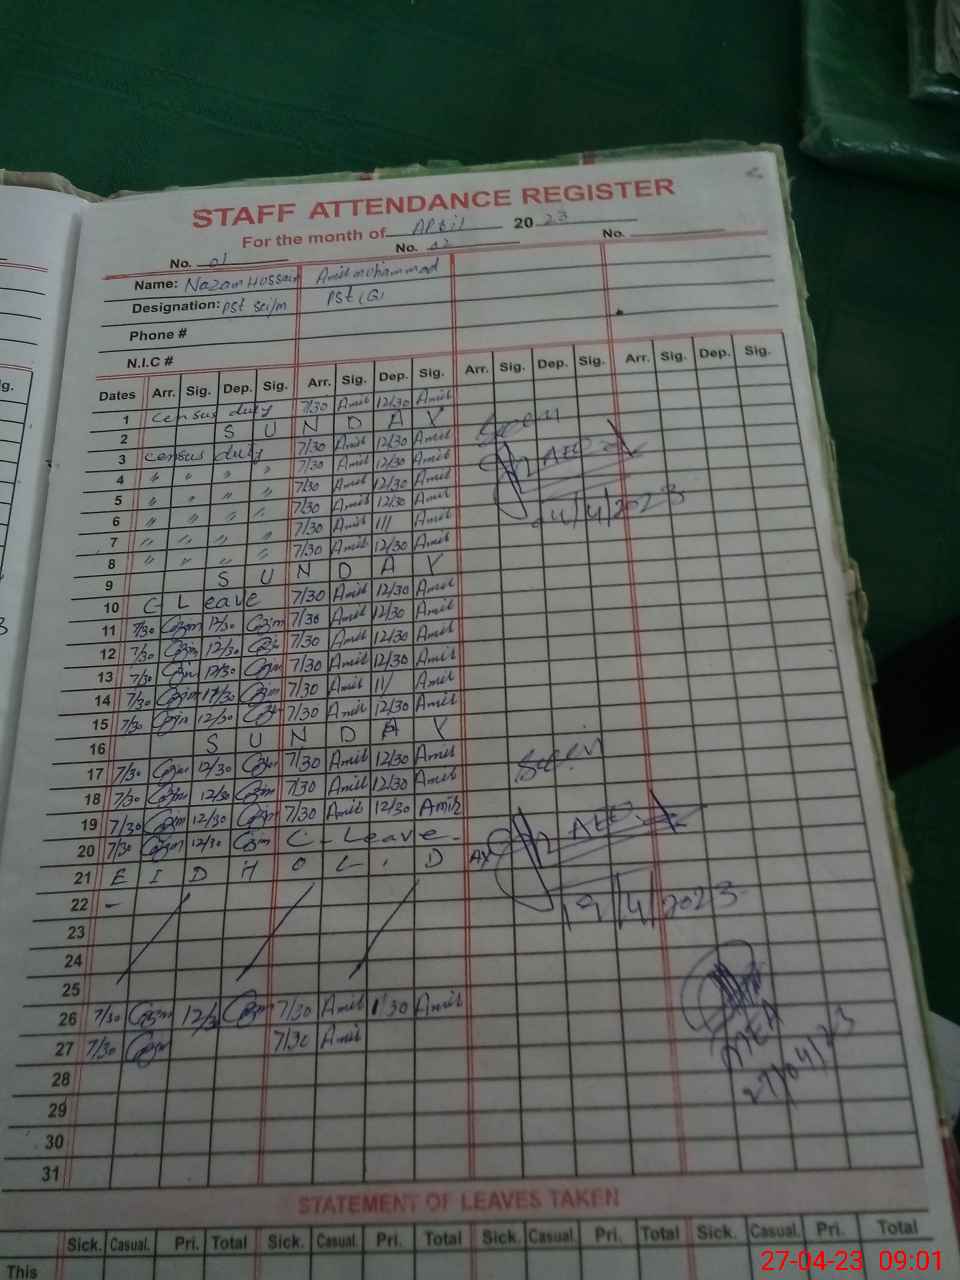 STAFF ATTENDANCE REGISTER
For the month of April 20 23
No. 01 No. 02 No.
Name: Nazam Hussain Amir mohammad
Designation: PST PST (G)
Phone #
N.I.C #
Dates Arr. Sig. Dep. Sig. Arr. Sig. Dep. Sig. Arr. Sig. Dep. Sig. Arr. Sig. Dep. Sig.
1 census duty 7/30 Amir 12/30 Amir
2 S U N D A Y
3 census duty 7/30 Amir 12/30 Amir
4 " " " " 7/30 Amir 12/30 Amir
5 " " " " 7/30 Amir 12/30 Amir
6 " " " " 7/30 Amir 12/30 Amir
7 " " " " 7/30 Amir 11/ Amir
8 " " " " 7/30 Amir 12/30 Amir
9 S U N D A Y
10 C Leave 7/30 Amir 12/30 Amir
11 7/30 12/30 7/30 Amir 12/30 Amir
12 7/30 12/30 7/30 Amir 12/30 Amir
13 7/30 12/30 7/30 Amir 12/30 Amir
14 7/30 7/30 Amir 11/ Amir
15 7/30 12/30 7/30 Amir 12/30 Amir
16 S U N D A Y
17 7/30 12/30 7/30 Amir 12/30 Amir
18 7/30 12/30 7/30 Amir 12/30 Amir
19 7/30 12/30 7/30 Amir 12/30 Amir
20 7/30 12/30 C - Leave -
21 E I D H O L I D
22
23
24
25
26 7/30 7/30 Amir 1/30 Amir
27 7/30 7/30 Amir
28
29
30
31
Seen
AEO
14/4/2023
Seen
AEO
19/4/2023
MEA
27/04/23
STATEMENT OF LEAVES TAKEN
Sick. Casual. Pri. Total Sick. Casual. Pri. Total Sick. Casual. Pri. Total Sick. Casual. Pri. Total
This
27-04-23 09:01